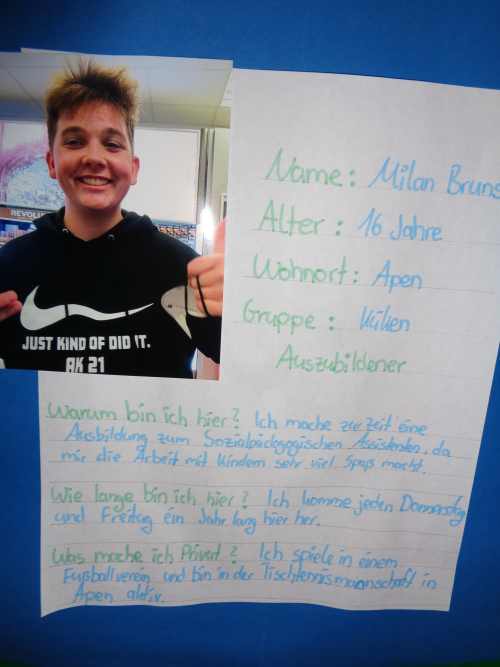 REVOLU
JUST KIND OF DID IT.
AK 21
Name: Milan Bruns
Alter: 16 Jahre
Wohnort: Apen
Gruppe: Küken
Auszubildener
Warum bin ich hier? Ich mache zur Zeit eine
Ausbildung zum Sozialpädagogischen Assistenten, da
mir die Arbeit mit Kindern sehr viel Spaß macht.
Wie lange bin ich hier? Ich komme jeden Donnerstag
und Freitag ein Jahr lang hier her.
Was mache ich Privat? Ich spiele in einem
Fußballverein und bin in der Tischtennismannschaft in
Apen aktiv.